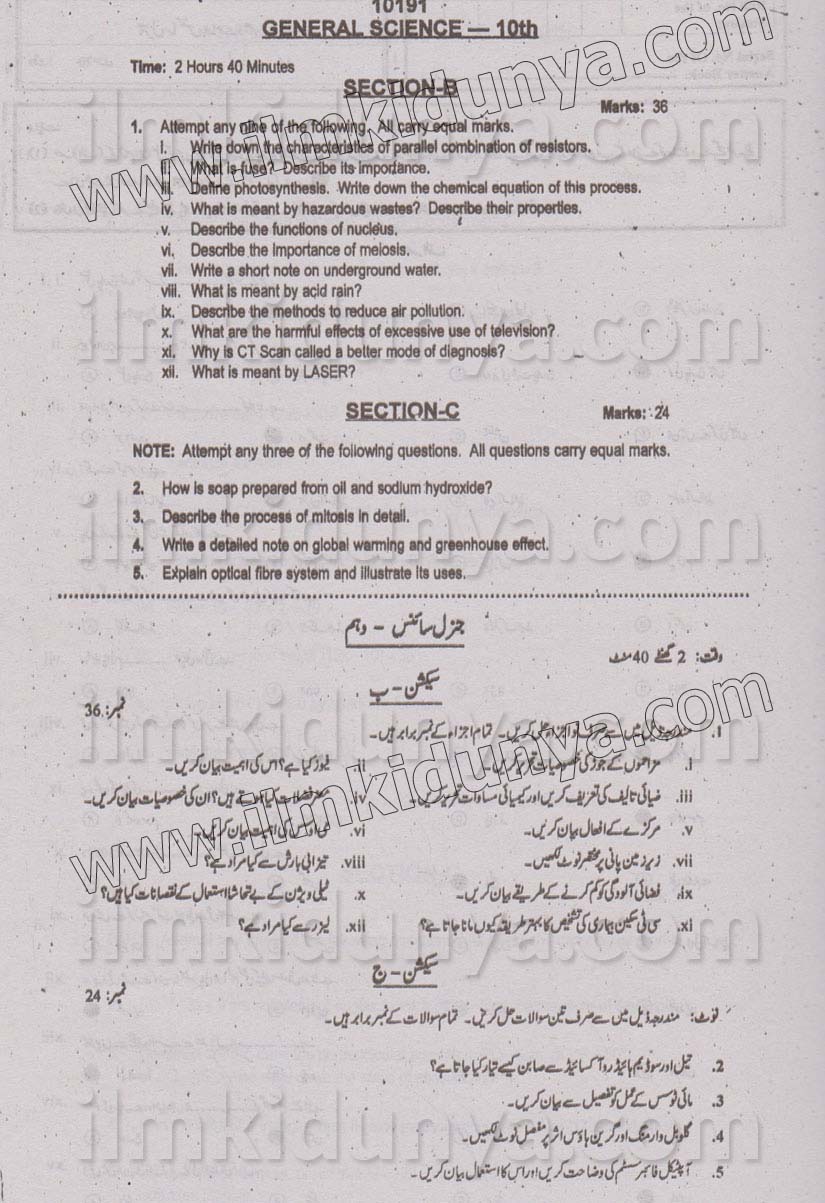 10191
GENERAL SCIENCE — 10th
Time: 2 Hours 40 Minutes
SECTION-B
Marks: 36
1. Attempt any nine of the following. All carry equal marks.
i. Write down the characteristics of parallel combination of resistors.
ii. What is fuse? Describe its importance.
iii. Define photosynthesis. Write down the chemical equation of this process.
iv. What is meant by hazardous wastes? Describe their properties.
v. Describe the functions of nucleus.
vi. Describe the importance of meiosis.
vii. Write a short note on underground water.
viii. What is meant by acid rain?
ix. Describe the methods to reduce air pollution.
x. What are the harmful effects of excessive use of television?
xi. Why is CT Scan called a better mode of diagnosis?
xii. What is meant by LASER?
SECTION-C Marks: 24
NOTE: Attempt any three of the following questions. All questions carry equal marks.
2. How is soap prepared from oil and sodium hydroxide?
3. Describe the process of mitosis in detail.
4. Write a detailed note on global warming and greenhouse effect.
5. Explain optical fibre system and illustrate its uses.
جنرل سائنس - دہم
وقت: 2 گھنٹے 40 منٹ
سیکشن - ب
نمبر: 36
1. مندرجہ ذیل میں سے صرف نو اجزاء حل کریں۔ تمام اجزاء کے نمبر برابر ہیں۔
i. مزاحموں کے جوڑ کی خصوصیات تحریر کریں۔ ii. فیوز کیا ہے؟ اس کی اہمیت بیان کریں۔
iii. ضیائی تالیف کی تعریف کریں اور کیمیائی مساوات تحریر کریں۔ iv. مضر فضلات کیا ہوتے ہیں؟ ان کی خصوصیات بیان کریں۔
v. مرکزے کے افعال بیان کریں۔ vi. می اوسس کی اہمیت بیان کریں۔
vii. زیر زمین پانی پر مختصر نوٹ لکھیں۔ viii. تیزابی بارش سے کیا مراد ہے؟
ix. فضائی آلودگی کو کم کرنے کے طریقے بیان کریں۔ x. ٹیلی ویژن کے بے تحاشا استعمال کے نقصانات کیا ہیں؟
xi. سی ٹی سکین بیماری کی تشخیص کا بہتر طریقہ کیوں مانا جاتا ہے؟ xii. لیزر سے کیا مراد ہے؟
سیکشن - ج
نمبر: 24
نوٹ: مندرجہ ذیل میں سے صرف تین سوالات حل کریں۔ تمام سوالات کے نمبر برابر ہیں۔
2. تیل اور سوڈیم ہائیڈرو آکسائیڈ سے صابن کیسے تیار کیا جاتا ہے؟
3. مائی ٹوسس کے عمل کو تفصیل سے بیان کریں۔
4. گلوبل وارمنگ اور گرین ہاؤس اثر پر مفصل نوٹ لکھیں۔
5. آپٹیکل فائبر سسٹم کی وضاحت کریں اور اس کا استعمال بیان کریں۔
www.ilmkidunya.com
www.ilmkidunya.com
ilmkidunya.com
ilmkidunya.com
ilmkidunya.com
ilmkidunya.com
ilmkidunya.com
ilmkidunya.com